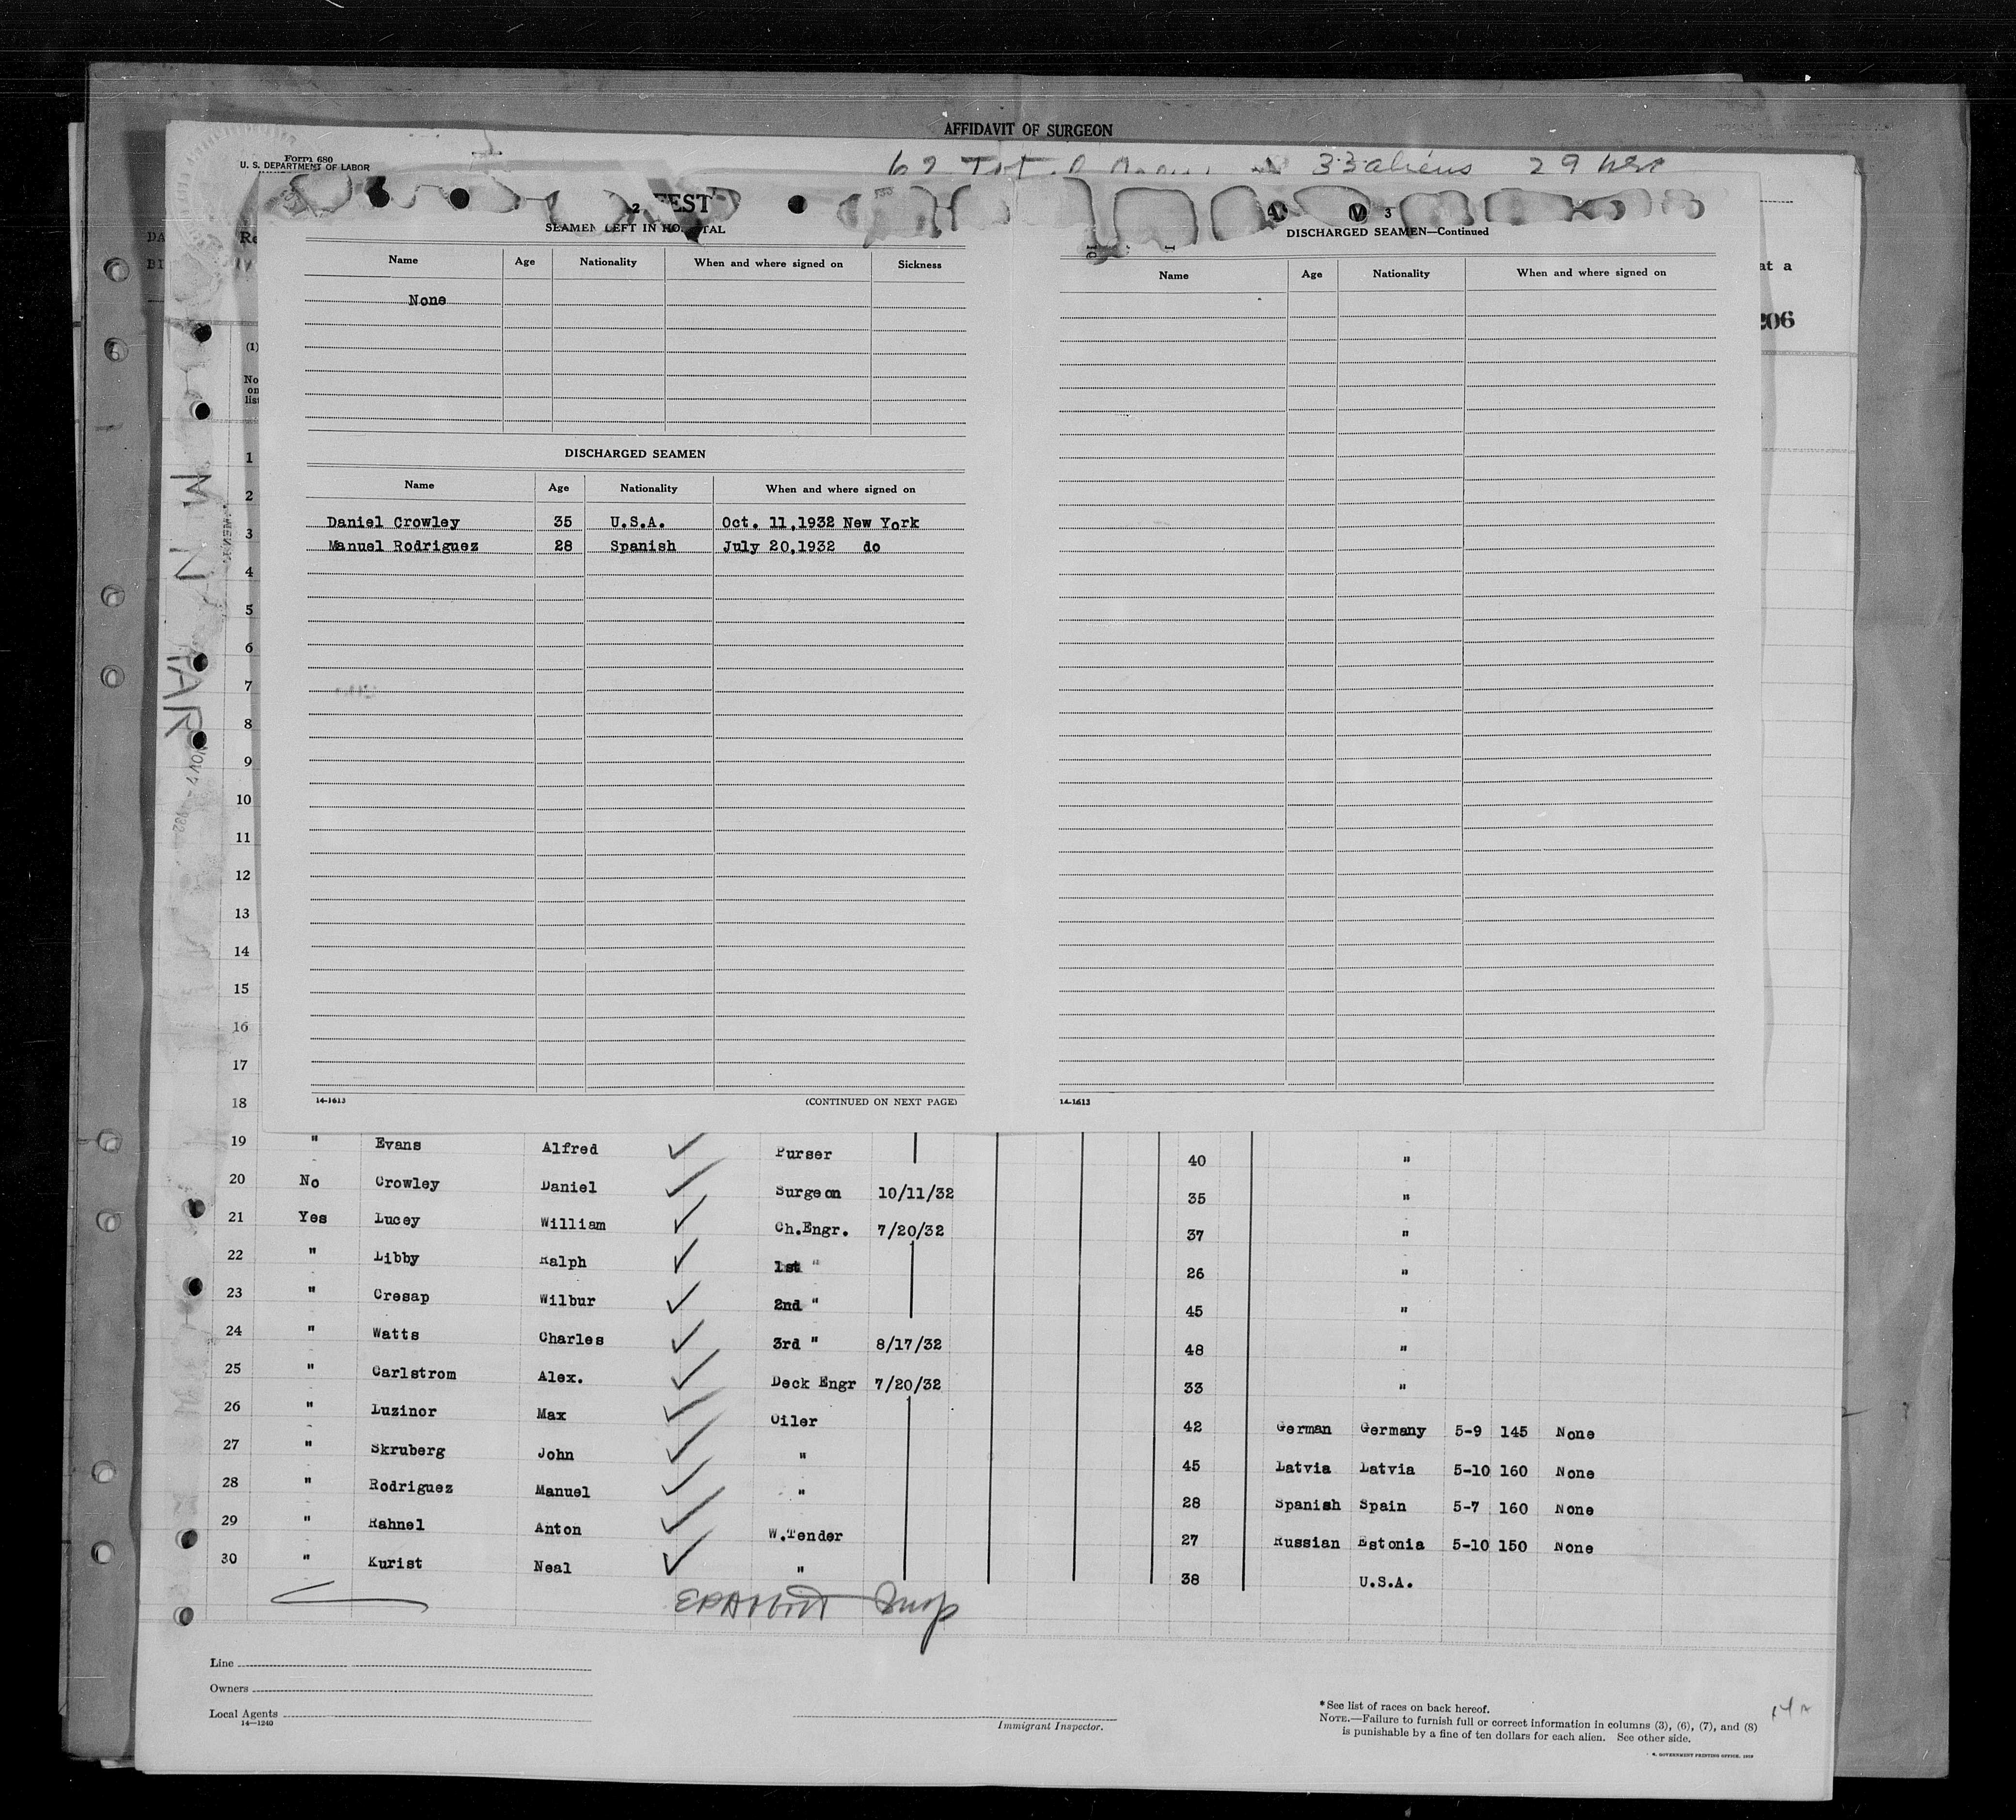 AFFIDAVIT OF SURGEON
Form 680
U. S. DEPARTMENT OF LABOR
33 aliens 29
2
SEAMEN LEFT IN HOSPITAL
Name Age Nationality When and where signed on Sickness
None
DISCHARGED SEAMEN
Name Age Nationality When and where signed on
Daniel Crowley 35 U.S.A. Oct. 11,1932 New York
Manuel Rodriguez 28 Spanish July 20,1932 do
14-1613 (CONTINUED ON NEXT PAGE)
3
DISCHARGED SEAMEN—Continued
Name Age Nationality When and where signed on
14-1613
at a
206
(1)
No
on
list
1
2
3
4
5
6
7
8
9
10
11
12
13
14
15
16
17
18
19 " Evans Alfred Purser 40 "
20 No Crowley Daniel Surgeon 10/11/32 35 "
21 Yes Lucey William Ch.Engr. 7/20/32 37 "
22 " Libby Ralph 1st " 26 "
23 " Cresap Wilbur 2nd " 45 "
24 " Watts Charles 3rd " 8/17/32 48 "
25 " Carlstrom Alex. Deck Engr 7/20/32 33 "
26 " Luzinor Max Oiler 42 German Germany 5-9 145 None
27 " Skruberg John " 45 Latvia Latvia 5-10 160 None
28 " Rodriguez Manuel " 28 Spanish Spain 5-7 160 None
29 " Rahnel Anton W.Tender 27 Russian Estonia 5-10 150 None
30 " Kurist Neal " 38 U.S.A.
Line
Owners
Local Agents
14—1240
Immigrant Inspector.
*See list of races on back hereof.
NOTE.—Failure to furnish full or correct information in columns (3), (6), (7), and (8)
is punishable by a fine of ten dollars for each alien. See other side.
GOVERNMENT PRINTING OFFICE